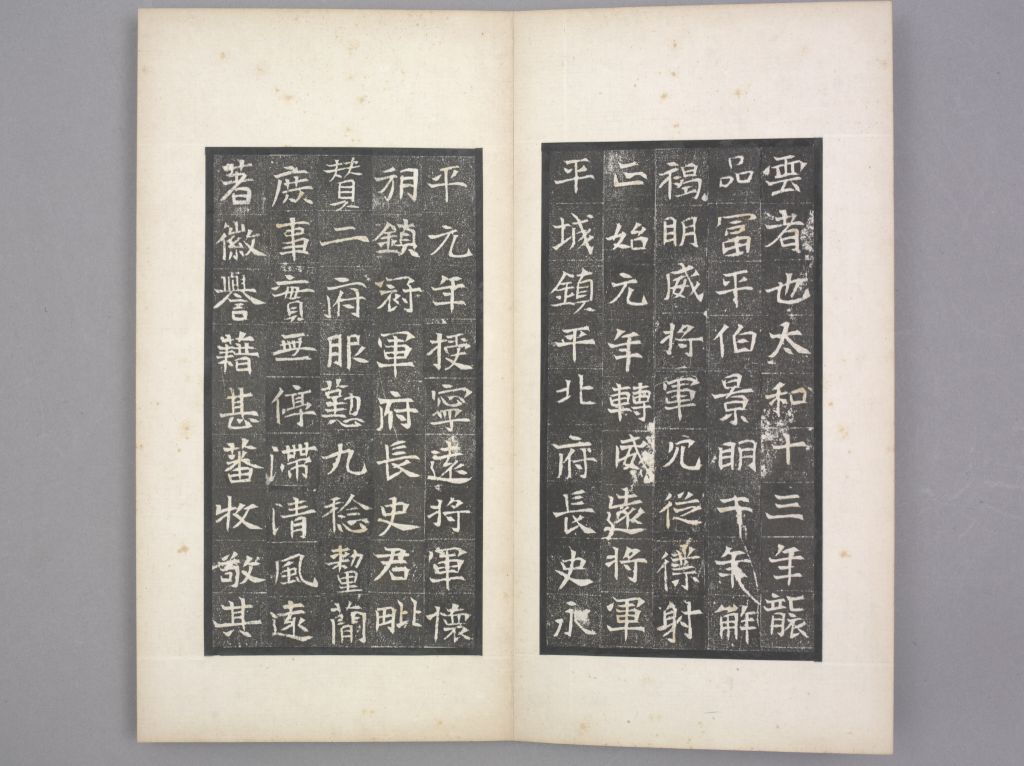 雲者也太和十三年襲
品富平伯景明年解
褐明威將軍冗從僕射
正始元年轉威遠將軍
平城鎮平北府長史永
平元年授寧遠將軍懷
朔鎮冠軍府長史君毗
贊二府服懃九稔釐簡
庶事實無停滯清風遠
著徽譽藉甚蕃牧敬其